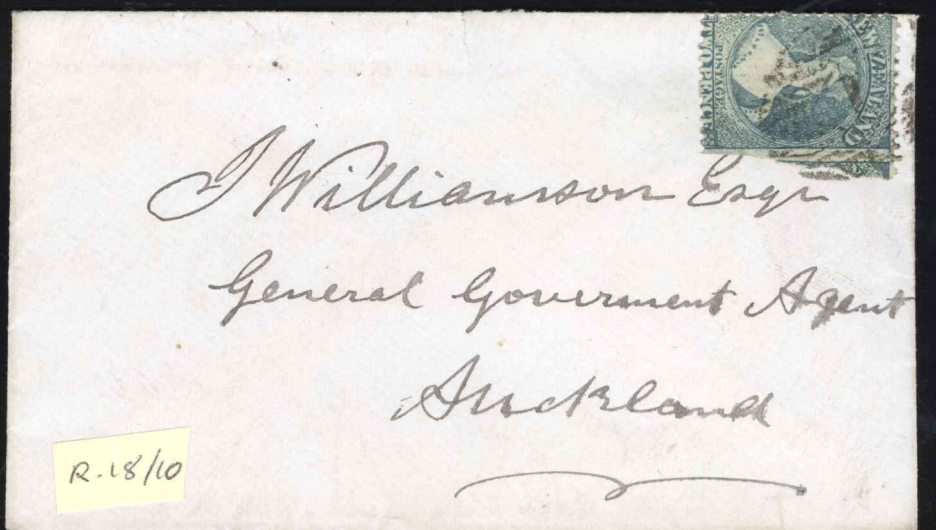 NEW ZEALAND
POSTAGE
TWO PENCE
J Williamson Esqr
General Government Agent
Auckland
R.18/10